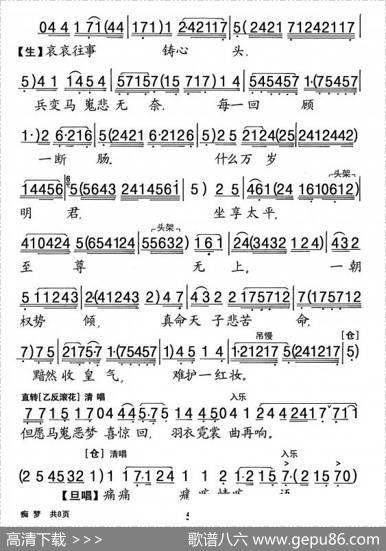 0 4 4 1 7 1 (4 4 | 1 7 1) 1 2 4 2 1 1 7 | 5 2 4 2 1 7 1 2 4 2 1 1 7
【生】哀哀往事 铸心 头.
5) 4 1 1 4 5 4 | 5 7 1 5 7 (1 5 7 1 7) 1 4 | 5 4 5 4 5 7 · 1 · (7 5 4 5 7
兵变马嵬悲无奈. 每一回 顾
1 ·) 2 6·2 1 6 | 5 (2 4 2 1 6·2 1 2 6 | 5) 2 5 2 1 2 4 (2 5 | 2 4 1 2 4 4 2)
一断 肠. 什么万 岁
1 4 4 5 6 5 (5 6 4 3 2 4 1 4 5 6 1 | 5) 2 5 | 4 6 1 (2 4 1 6 1 0 6 1 2)
头架
明 君, 坐享太平,
4 1 0 4 2 4 5 (6 5 4 1 2 4 | 5 5 6 3 2) 1 6 1 | 2 4 (3 4 3 2 1 2 4) | 4 3 2
头架
至 尊 无 上, 一朝
5 1 1 2 4 3 2 (1 1 2 4 3 | 2) 4 7 | 6 2 1 7 5 7 1 2 | 4 3 2 1 7 5 7 1 2
权势 倾, 真命天 子悲苦 命.
7) 7 5 | 2 1 7 5 7 1 · (7 5 4 5 7 | 1) 4 5 1 4 | 1·2 1 2 1 7 5 (2 4 1 2 1 7 | 5)
吊慢 〔仓〕
黯然收 皇 气, 难护一红妆。
直转[乙反滚花] 清唱 入乐
7 7 1 5 1 7 0 4 4 5·7 5 1 4 4 5 1 2 0 4 4 2 4 1 7 1
但愿马嵬恶梦 喜惊回, 羽衣霓裳 曲再响。
〔仓〕 清唱 入乐
(2 5 4 5 3 2 · 1) 1 1 7·1 2 4 1 1 2 1 2 1 5 (2 1 5 7 0)
【旦唱】痛痛
痴 梦 共8页
高清下载 >>> 歌谱八六 www.gepu86.com